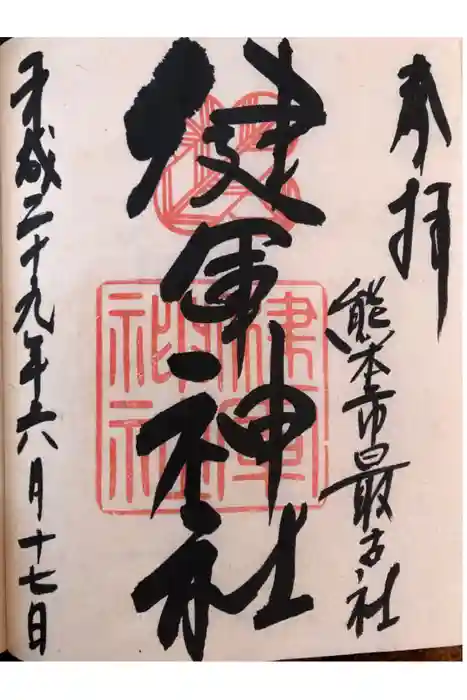 奉拝
熊本市最古社
健軍神社
健軍神社
平成二十九年六月十七日